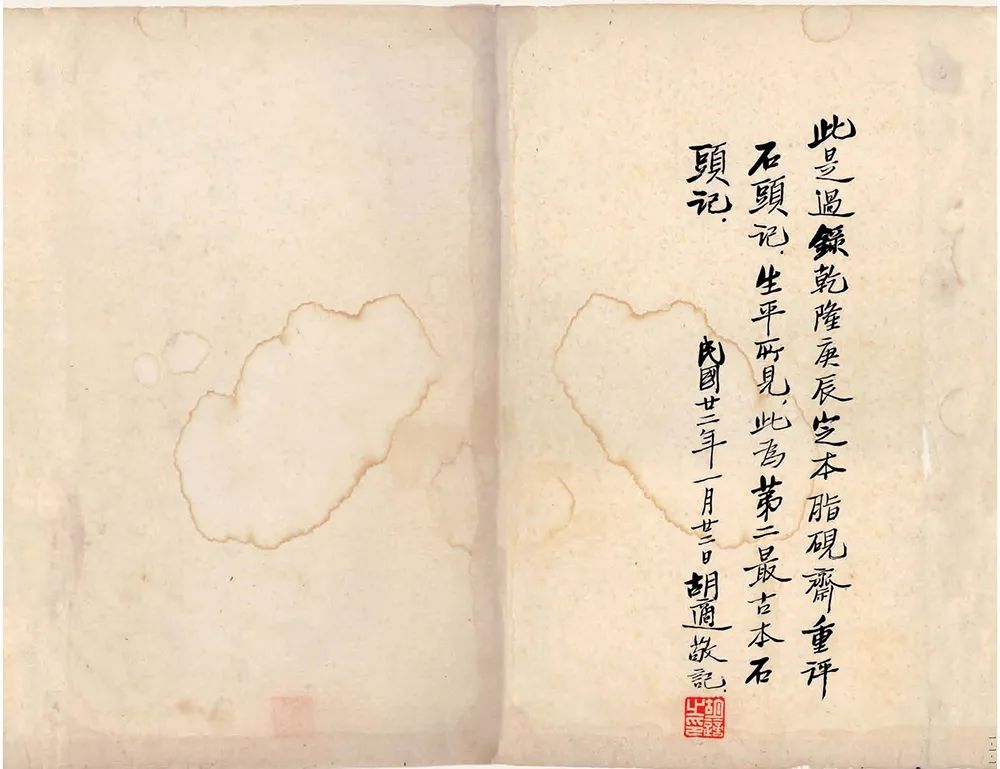 此是過錄乾隆庚辰定本脂硯齋重評
石頭記.生平所見,此為第二最古本石
頭記.
民國廿二年一月廿二日胡適敬記.
胡適之印